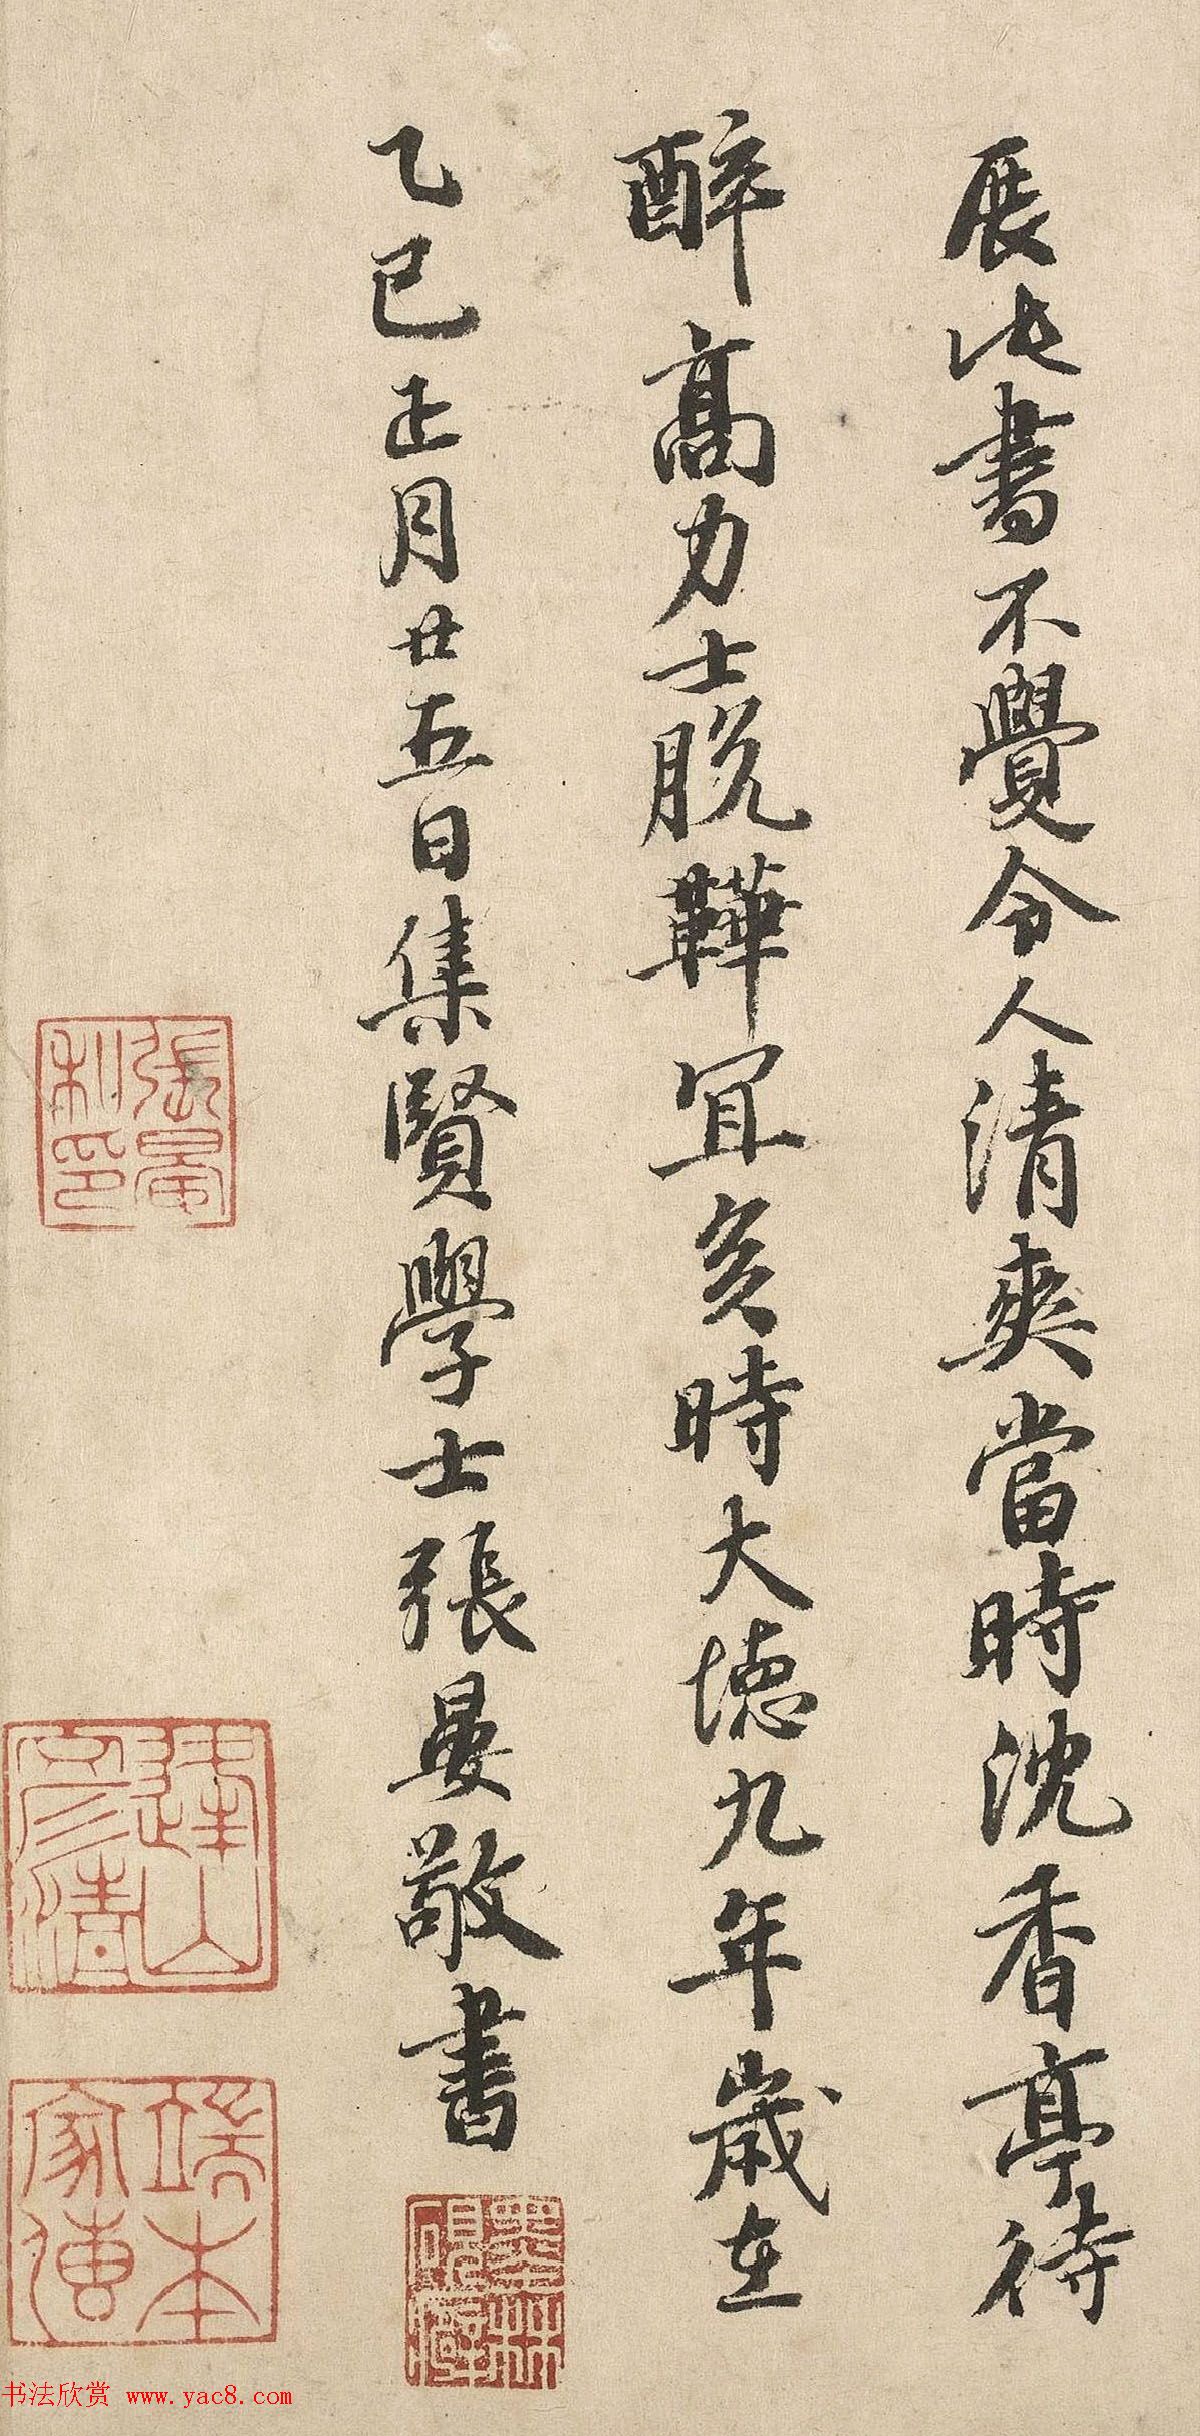 展此書不覺令人清爽當時沈香亭待
醉高力士脫鞾宜矣時大德九年歲在
乙巳正月廿五日集賢學士張晏敬書
張晏
私印
端本
家傳
书法欣赏 www.yac8.com